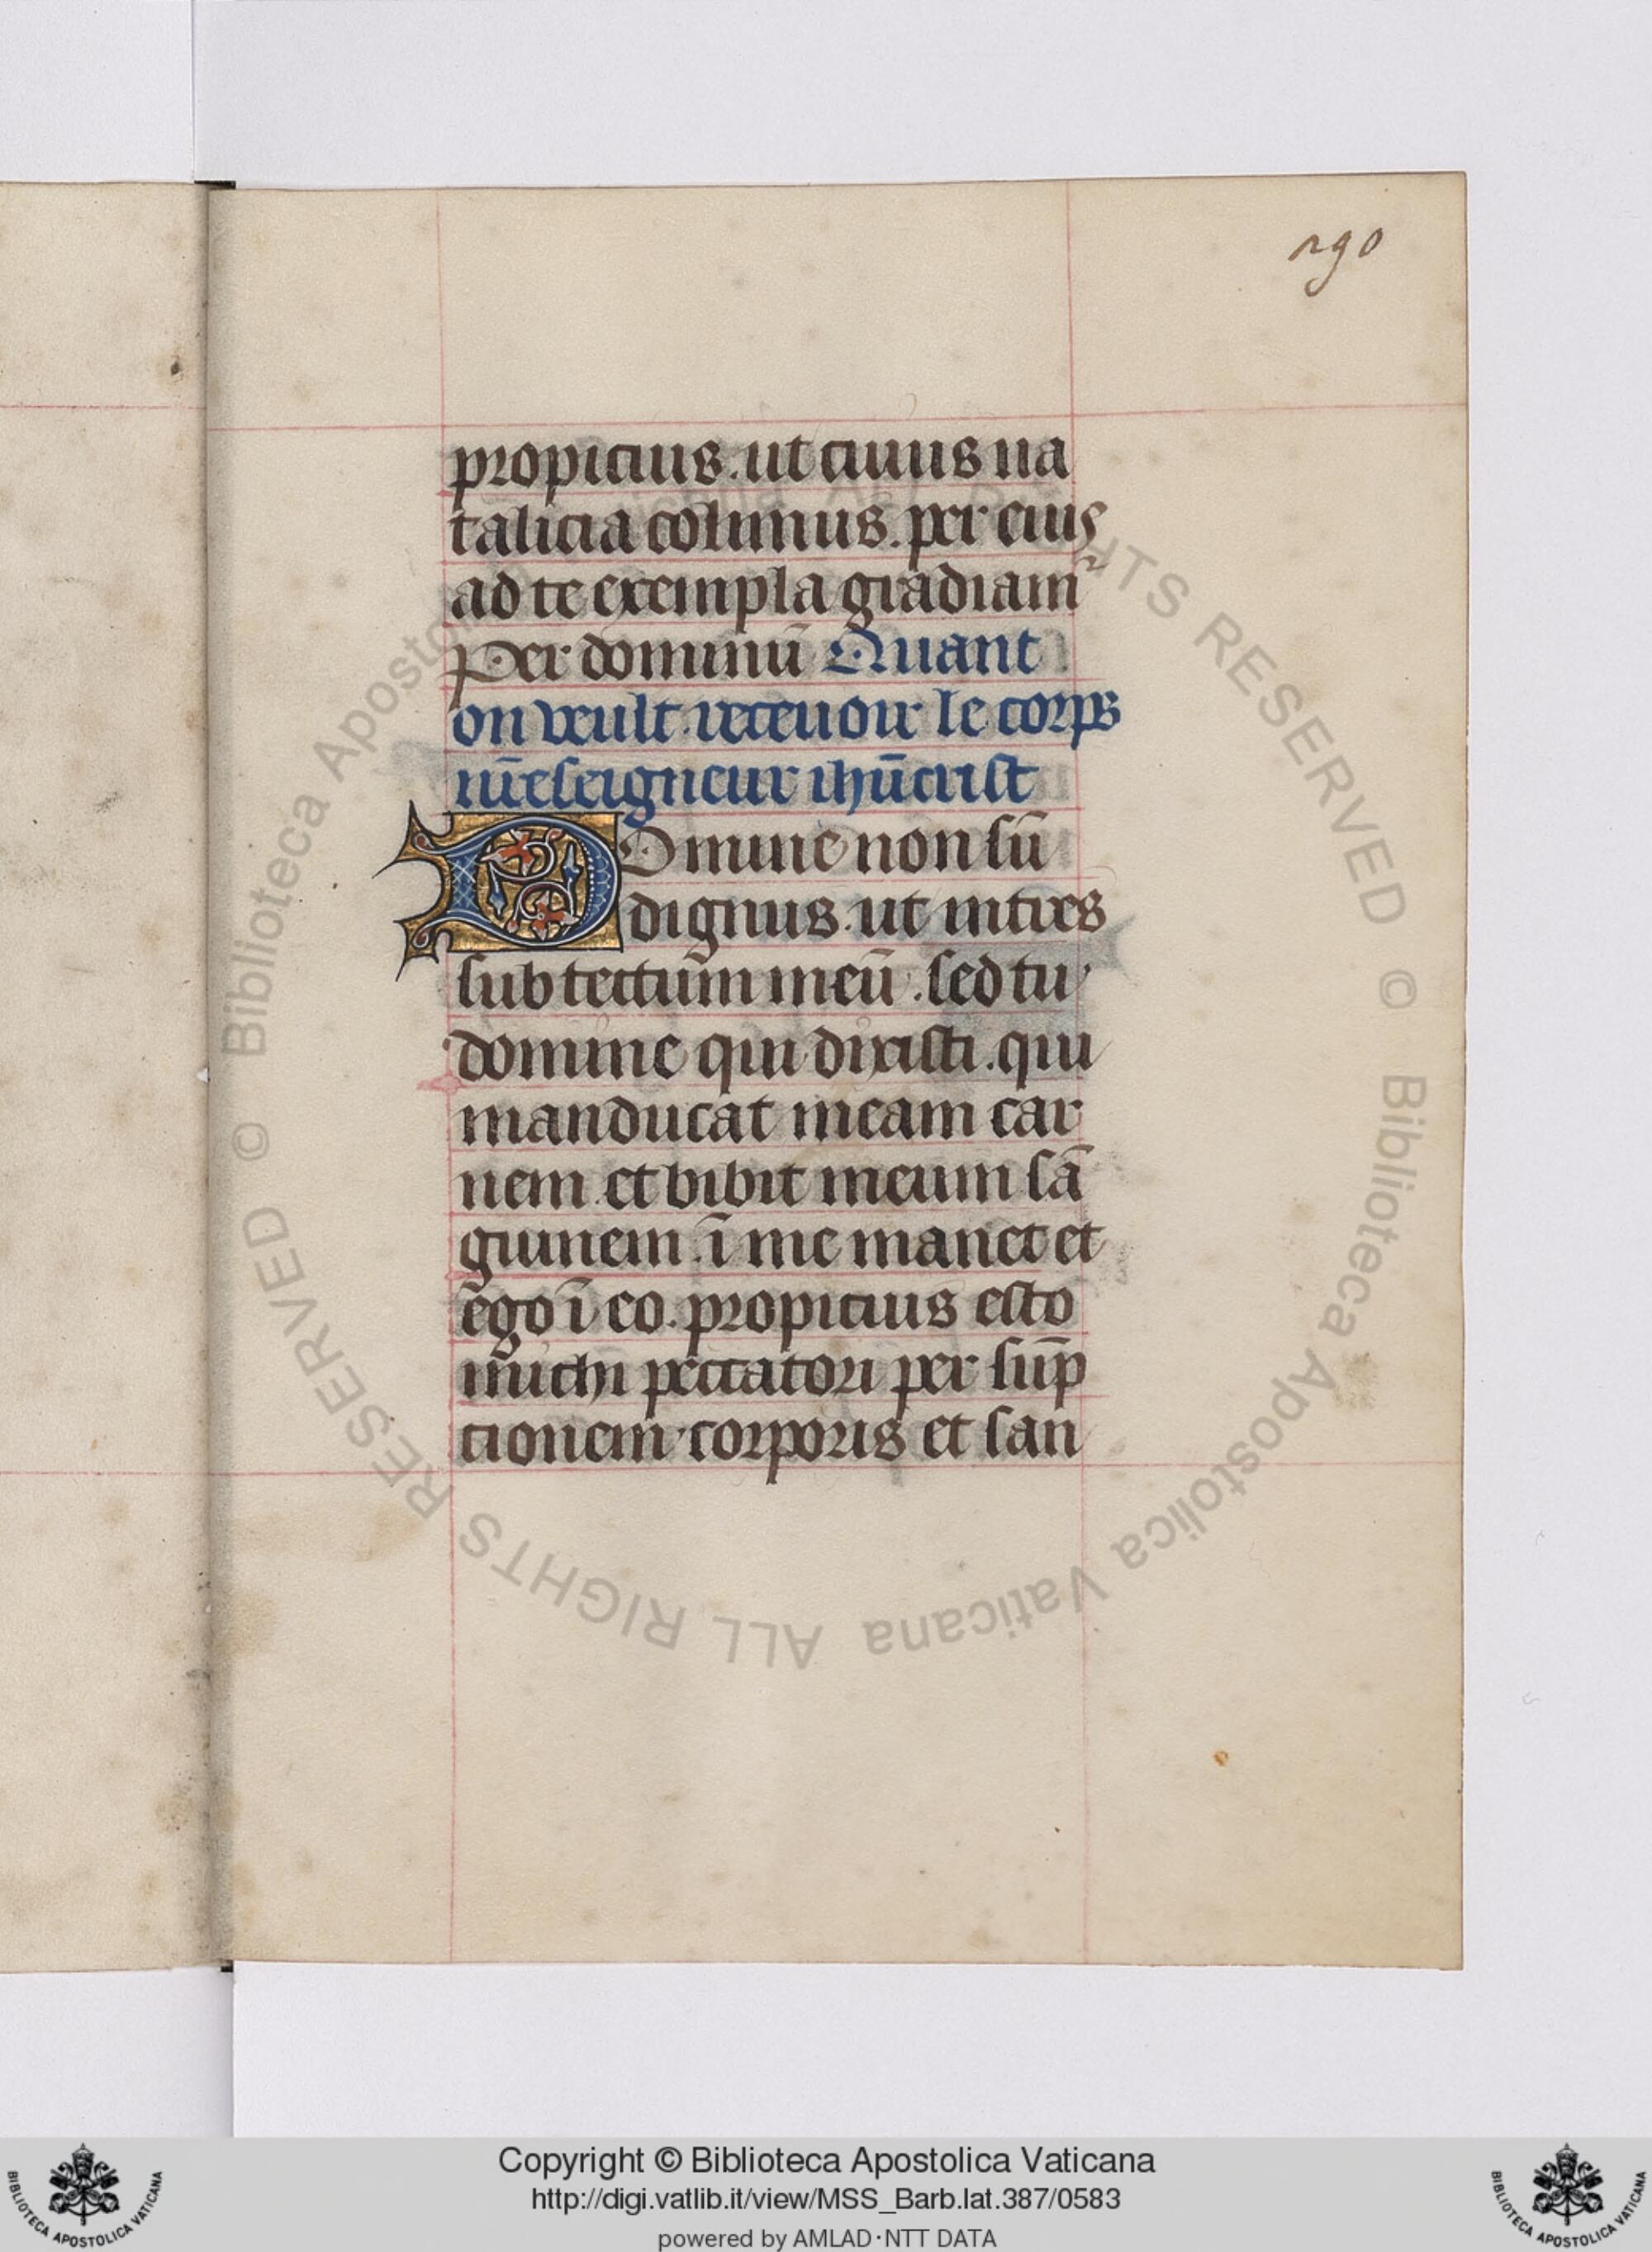 290
propicius. ut cuius na
talicia colimus. per eius
ad te exempla gradiam᷑
Per dominū Quant
on veult receuoir le corps
nr̄e seigneur ihūcrist
Domine non sū
dignus. ut intres
sub tectum meū. sed tu
domine qui dixisti. qui
manducat meam car
nem et bibit meum sā
guinem. ī me manet et
ego ī eo. propicius esto
michi peccatori per sūp
tionem corporis et san
Copyright © Biblioteca Apostolica Vaticana
http://digi.vatlib.it/view/MSS_Barb.lat.387/0583
powered by AMLAD·NTT DATA
BIBLIOTECA APOSTOLICA VATICANA
BIBLIOTECA APOSTOLICA VATICANA
© Biblioteca Apostolica Vaticana ALL RIGHTS RESERVED © Biblioteca Apostolica Vaticana ALL RIGHTS RESERVED